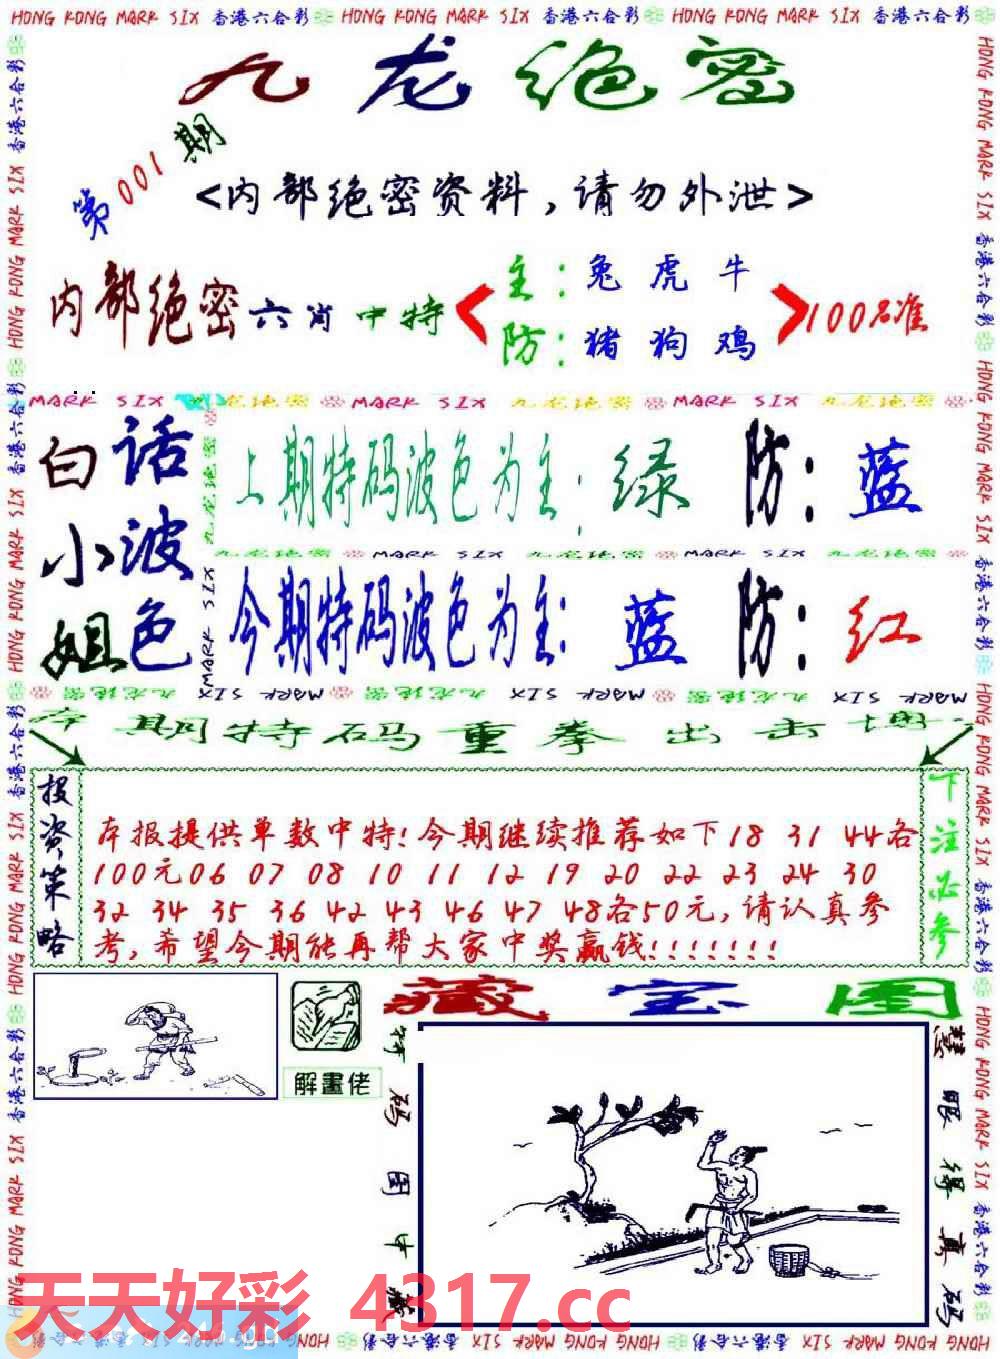 HONG KONG MARK SIX 香港六合彩 HONG KONG MARK SIX 香港六合彩 HONG KONG MARK SIX 香港六合彩
九龙绝密
第001期
<内部绝密资料，请勿外泄>
内部绝密六肖中特
主：兔虎牛
防：猪狗鸡
100%准
MARK SIX 九龙绝密 MARK SIX 九龙绝密 MARK SIX 九龙绝密
白小姐
话波色
上期特码波色为主：绿 防：蓝
九龙绝密 MARK SIX 九龙绝密 MARK SIX 九龙绝密
今期特码波色为主：蓝 防：红
期特码重拳出击
投资策略
本报提供单数中特！今期继续推荐如下18 31 44各
100元06 07 08 10 11 12 19 20 22 23 24 30
32 34 35 36 42 43 46 47 48各50元，请认真参
考，希望今期能再帮大家中奖赢钱！！！！！！！
下注必参
解畫佬
藏宝图
特码图中藏
慧眼得真码
天天好彩 4317.cc
HONG KONG MARK SIX 香港六合彩